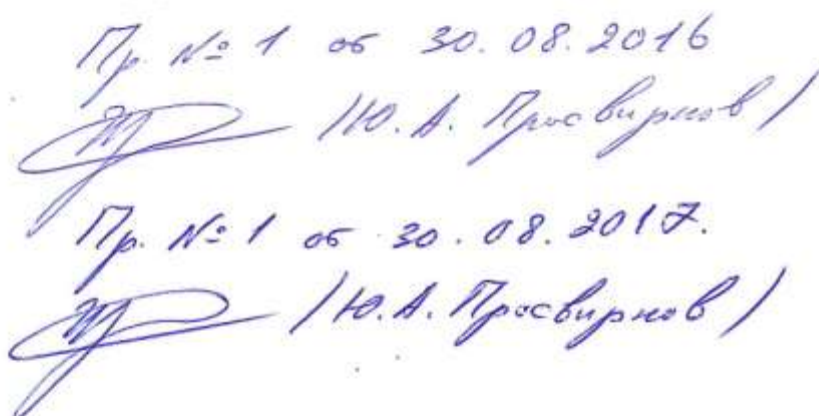 Пр. № 1 от 30.08.2016
/Ю.А. Просвирнов/
Пр. № 1 от 30.08.2017.
/Ю.А. Просвирнов/